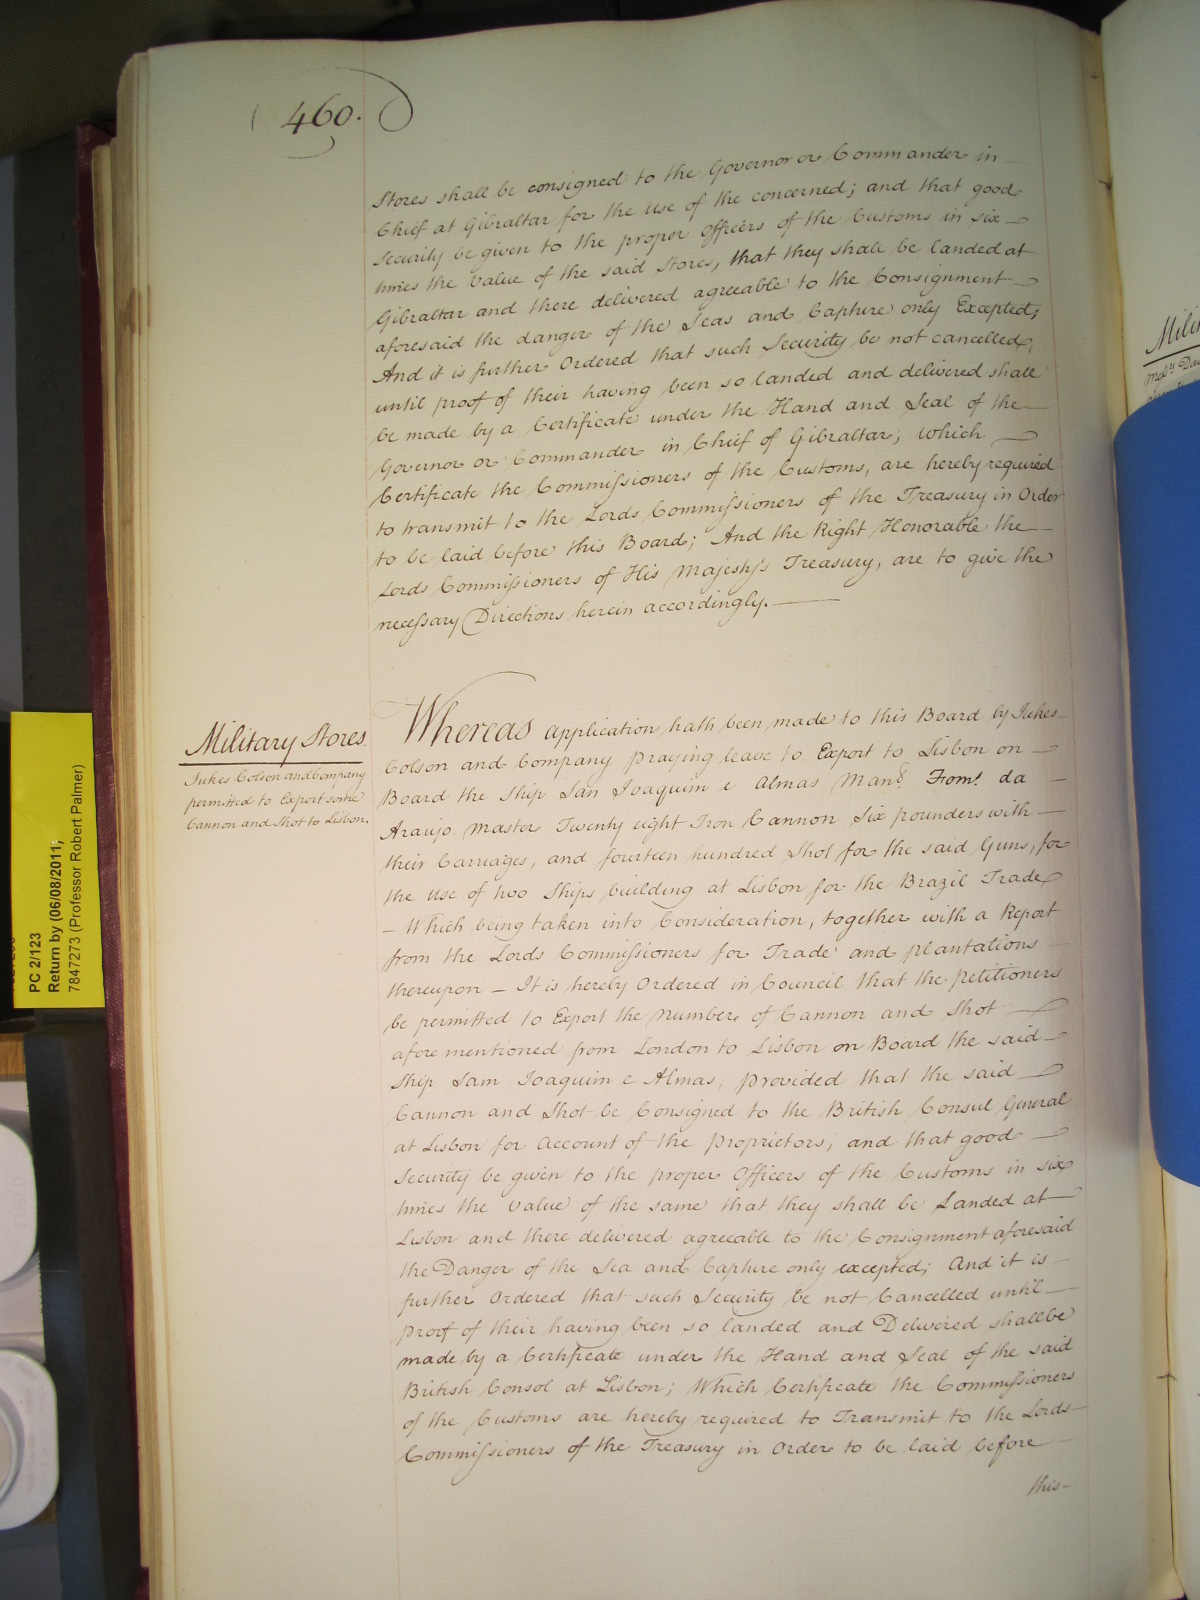 460.
Stores shall be consigned to the Governor or Commander in
Chief at Gibraltar for the use of the concerned; and that good
Security be given to the proper Officers of the Customs in six
times the Value of the said Stores, that they shall be landed at
Gibraltar and there delivered agreeable to the Consignment
aforesaid the danger of the Seas and Capture only Excepted;
And it is further Ordered that such Security be not cancelled,
until proof of their having been so landed and delivered shall
be made by a Certificate under the Hand and Seal of the
Governor or Commander in Chief of Gibraltar; which
Certificate the Commissioners of the Customs, are hereby required
to transmit to the Lords Commissioners of the Treasury in Order
to be laid before this Board; And the Right Honorable the
Lords Commissioners of His Majesty's Treasury, are to give the
necessary Directions herein accordingly.
Military Stores.
Jukes Colson and Company
permitted to Export some
Cannon and Shot to Lisbon.
Whereas application hath been made to this Board by Jukes
Colson and Company praying leave to Export to Lisbon on
Board the Ship San Joaquim e Almas Man. da
Araujo Master Twenty eight Iron Cannon Six pounders with
their Carriages, and fourteen hundred Shot for the said Guns, for
the use of two Ships building at Lisbon for the Brazil Trade
– Which being taken into Consideration, together with a Report
from the Lords Commissioners for Trade and plantations
thereupon – It is hereby Ordered in Council that the petitioners
be permitted to Export the number of Cannon and Shot
aforementioned from London to Lisbon on Board the said
Ship Sam Joaquim e Almas, provided that the said
Cannon and Shot be Consigned to the British Consul General
at Lisbon for Account of the proprietors; and that good
Security be given to the proper Officers of the Customs in six
times the Value of the same that they shall be Landed at
Lisbon and there delivered agreeable to the Consignment aforesaid
the Danger of the Sea and Capture only excepted; And it is
further Ordered that such Security be not Cancelled until
proof of their having been so landed and Delivered shall be
made by a Certificate under the Hand and Seal of the said
British Consol at Lisbon; Which Certificate the Commissioners
of the Customs are hereby required to Transmit to the Lords
Commissioners of the Treasury in Order to be laid before
this
PC 2/123
Return by (06/08/2011;
7847273 (Professor Robert Palmer)